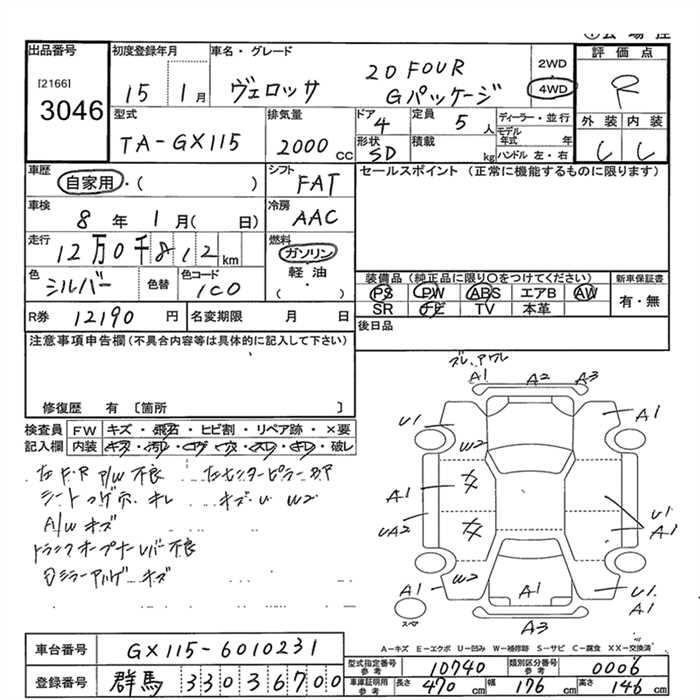 出品番号
[2166]
3046
初度登録年月
15 1月
車名・グレード
ヴェロッサ
20 FOUR
Gパッケージ
2WD
4WD
評価点
R
外装 内装
型式
TA-GX115
排気量
2000 CC
ドア
4
定員
5 人
ディーラー・並行
モデル年式 年
ハンドル 左・右
形状
SD
積載
kg
車歴
自家用・( )
シフト
FAT
セールスポイント(正常に機能するものに限ります)
車検
8年 1月( 日)
冷房
AAC
走行
12万0千812 km
燃料
ガソリン
軽・油
( )
色
シルバー
色替
色コード
1C0
装備品(純正品に限り○をつけてください)
PS PW ABS エアB AW
SR ナビ TV 本革
新車保証書
有・無
R券 12190 円
名変期限 月 日
後日品
注意事項申告欄(不具合内容等は具体的に記入して下さい)
修復歴 有 〔箇所 〕
検査員記入欄
FW キズ・飛石・ヒビ割・リペア跡・×要
内装 キズ・汚レ・コゲ・穴・スレ・キレ・破レ
左F・R P/W 不良
シート コゲ穴 キレ
キズ・U W2
A/W キズ
トランクオープナーレバー不良
キズ
ズレ、アワレ
A1 A2 A3
U1 A1
W2
A1 U1
UA2 A1
W2 U1
A1 A1 A1
A3
スペア
A-キズ E-エクボ U-凹み W-補修跡 S-サビ C-腐食 XX-交換済
車台番号 GX115-6010231
登録番号 群馬 330 3 6700
型式指定番号 参考 10740
類別区分番号 参考 0006
車庫証明用 参考 長さ 470cm 幅 176cm 高さ 146cm